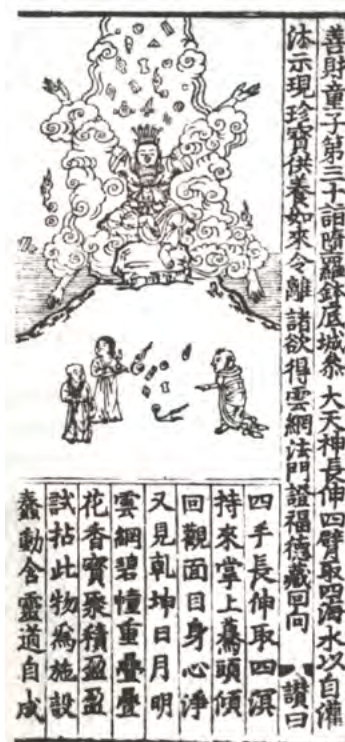 善財童子第三十詣墮羅鉢底城叅 大天神長伸四臂取四海水以自灌
沐示現珍寶供養如來令離諸欲得雲網法門證福德藏回向 讚曰
四手長伸取四溟
持來掌上驀頭傾
回觀面目身心淨
又見乹坤日月明
雲網碧幢重疊疊
花香寶聚積盈盈
試拈此物爲施設
蠢動含靈道自成